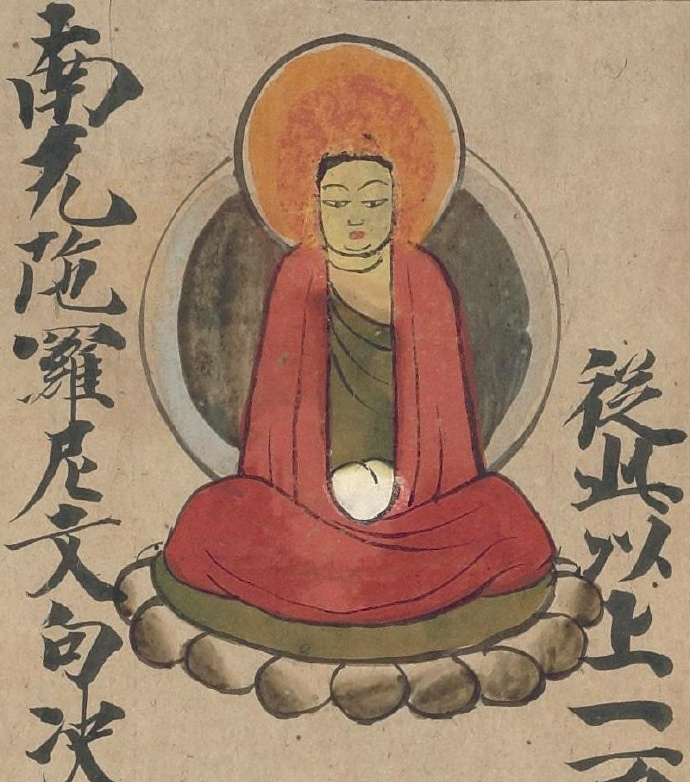 從此以上一
南无陁羅尼文句决